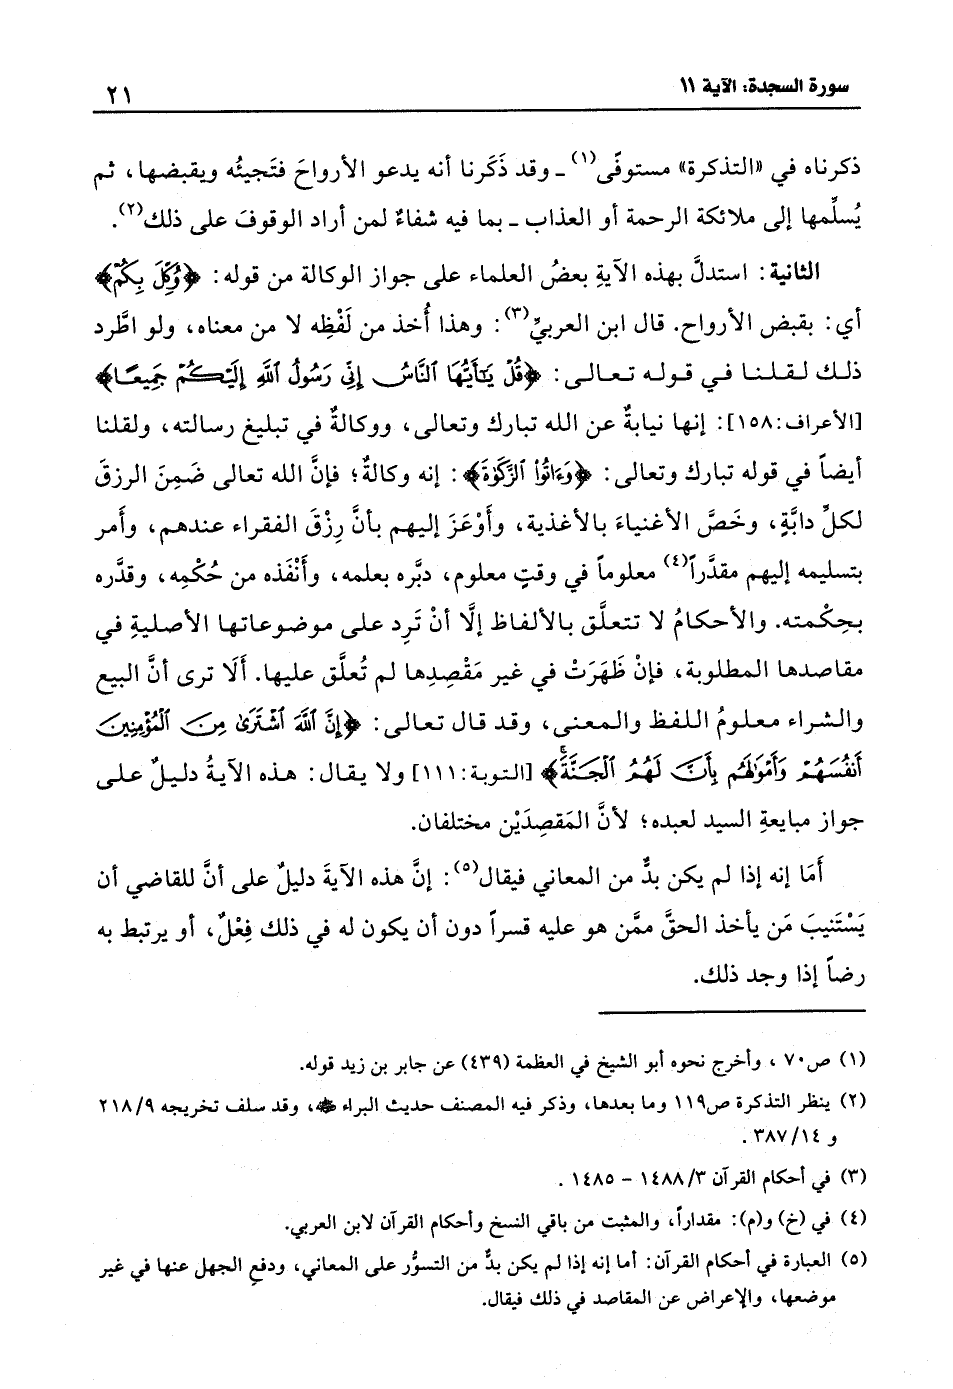 سورة السجدة: الآية ١١
٢١
ذكرناه في «التذكرة» مستوفًى(١) ـ وقد ذَكَرنا أنه يدعو الأرواحَ فتَجيئُه ويقبضها، ثم
يُسلِّمها إلى ملائكة الرحمة أو العذاب ـ بما فيه شفاءٌ لمن أراد الوقوفَ على ذلك(٢).
الثانية: استدلَّ بهذه الآيةِ بعضُ العلماء على جواز الوكالة من قوله: ﴿وُكِّلَ بِكُمْ﴾
أي: بقبض الأرواح. قال ابن العربيِّ(٣): وهذا أُخذ من لَفْظِه لا من معناه، ولو اطَّرد
ذلك لقلنا في قوله تعالى: ﴿قُلْ يَٰٓأَيُّهَا ٱلنَّاسُ إِنِّى رَسُولُ ٱللَّهِ إِلَيْكُمْ جَمِيعًا﴾
[الأعراف:١٥٨]: إنها نيابةٌ عن الله تبارك وتعالى، ووكالةٌ في تبليغ رسالته، ولقلنا
أيضاً في قوله تبارك وتعالى: ﴿وَءَاتُوا۟ ٱلزَّكَوٰةَ﴾: إنه وكالةٌ؛ فإنَّ الله تعالى ضَمِنَ الرزقَ
لكلِّ دابَّةٍ، وخَصَّ الأغنياءَ بالأغذية، وأَوْعَزَ إليهم بأنَّ رِزْقَ الفقراء عندهم، وأمر
بتسليمه إليهم مقدَّراً(٤) معلوماً في وقتٍ معلوم، دبَّره بعلمه، وأَنْفَذه من حُكْمِه، وقدَّره
بحِكْمته. والأحكامُ لا تتعلَّق بالألفاظ إلَّا أنْ تَرِد على موضوعاتها الأصليةِ في
مقاصدها المطلوبة، فإنْ ظَهَرَتْ في غير مَقْصِدِها لم تُعلَّق عليها. أَلَا ترى أنَّ البيع
والشراء معلومُ اللفظ والمعنى، وقد قال تعالى: ﴿إِنَّ ٱللَّهَ ٱشْتَرَىٰ مِنَ ٱلْمُؤْمِنِينَ
أَنفُسَهُمْ وَأَمْوَٰلَهُم بِأَنَّ لَهُمُ ٱلْجَنَّةَۚ﴾ [التوبة:١١١] ولا يقال: هذه الآيةُ دليلٌ على
جواز مبايعةِ السيد لعبده؛ لأنَّ المَقصِدَيْن مختلفان.
أَمَا إنه إذا لم يكن بدٌّ من المعاني فيقال(٥): إنَّ هذه الآيةَ دليلٌ على أنَّ للقاضي أن
يَسْتَنيبَ مَن يأخذ الحقَّ ممَّن هو عليه قسراً دون أن يكون له في ذلك فِعْلٌ، أو يرتبط به
رضاً إذا وجد ذلك.
(١) ص٧٠ ، وأخرج نحوه أبو الشيخ في العظمة (٤٣٩) عن جابر بن زيد قوله.
(٢) ينظر التذكرة ص١١٩ وما بعدها، وذكر فيه المصنف حديث البراء ﷺ، وقد سلف تخريجه ٢١٨/٩
و ٣٨٧/١٤ .
(٣) في أحكام القرآن ١٤٨٨/٣ - ١٤٨٥ .
(٤) في (خ) و(م): مقداراً، والمثبت من باقي النسخ وأحكام القرآن لابن العربي.
(٥) العبارة في أحكام القرآن: أما إنه إذا لم يكن بدٌّ من التسوُّر على المعاني، ودفعِ الجهل عنها في غير
موضعها، والإعراض عن المقاصد في ذلك فيقال.